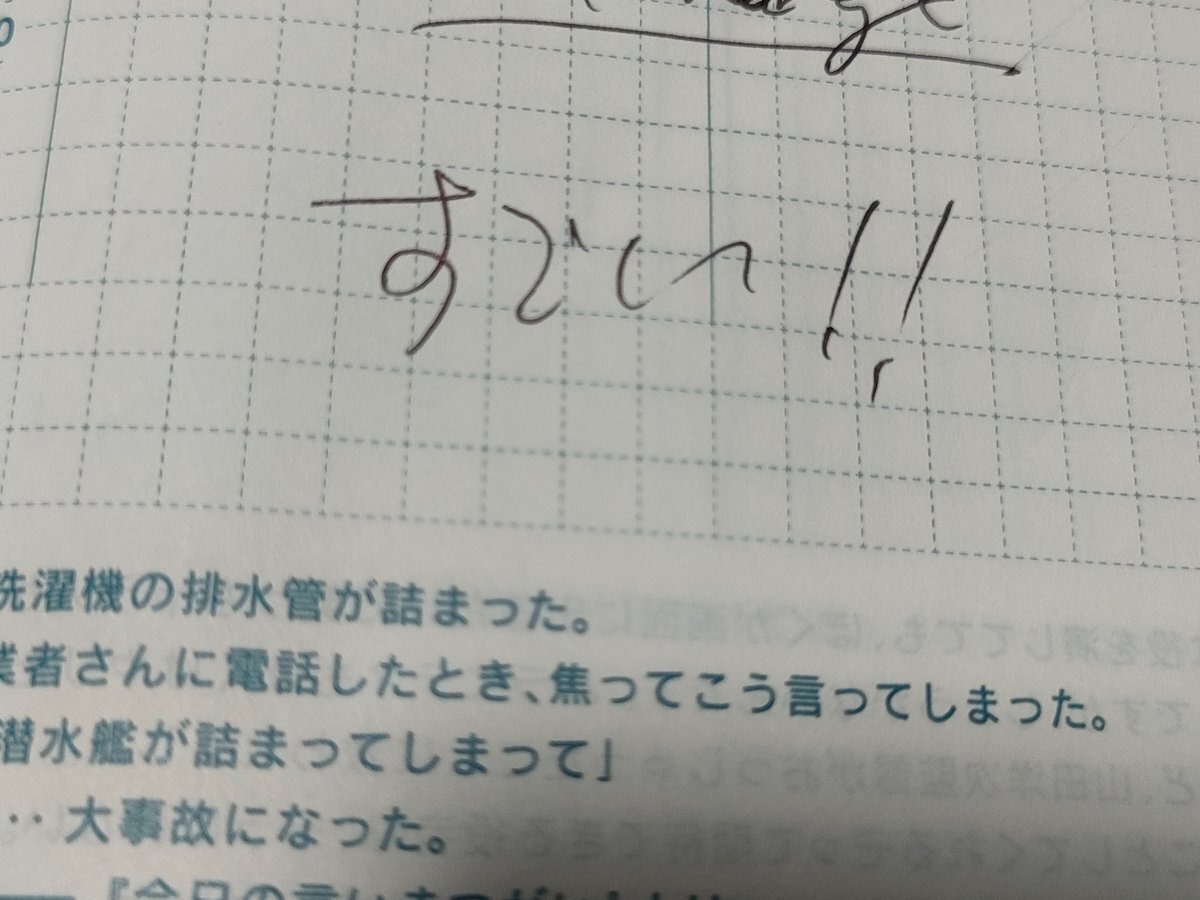 すごい!!
洗濯機の排水管が詰まった。
業者さんに電話したとき、焦ってこう言ってしまった。
潜水艦が詰まってしまって」
‥大事故になった。
『今日の言いまつがい